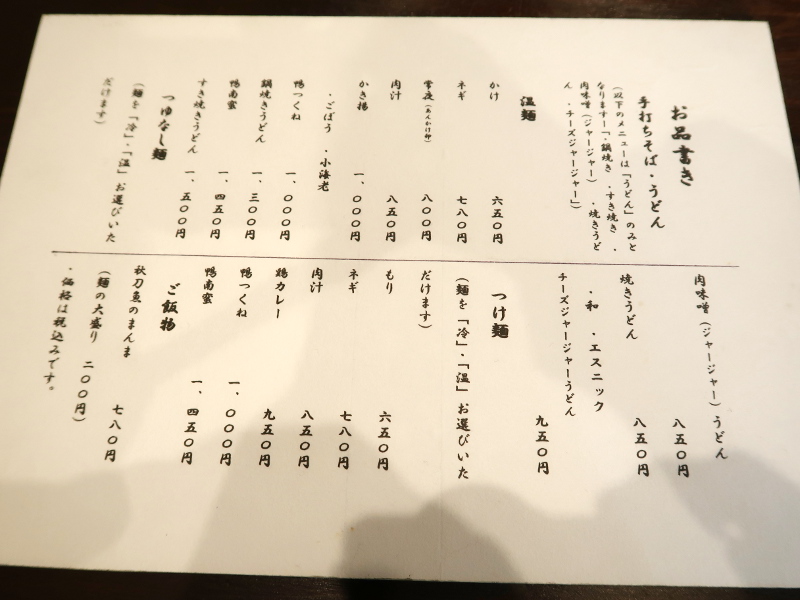 お品書き
手打ちそば・うどん
(以下のメニューは「うどん」のみと
なります→「・鍋焼き ・すき焼き ・
肉味噌(ジャージャー) ・焼きうど
ん ・チーズジャージャー」)
温麺
かけ 六五〇円
ネギ 七八〇円
常夜(あんかけ卵) 八〇〇円
肉汁 八五〇円
かき揚 一、〇〇〇円
・ごぼう ・小海老
鴨つくね 一、〇〇〇円
鍋焼きうどん 一、三〇〇円
鴨南蜜 一、四五〇円
すき焼きうどん 一、五〇〇円
つゆなし麺
(麺を「冷」・「温」お選びいた
だけます)
肉味噌(ジャージャー)うどん
八五〇円
焼きうどん 八五〇円
・和 ・エスニック
チーズジャージャーうどん
九五〇円
つけ麺
(麺を「冷」・「温」お選びいた
だけます)
もり 六五〇円
ネギ 七八〇円
肉汁 八五〇円
鶏カレー 九五〇円
鴨つくね 一、〇〇〇円
鴨南蜜 一、四五〇円
ご飯物
秋刀魚のまんま 七八〇円
(麺の大盛り 二〇〇円)
・価格は税込みです。